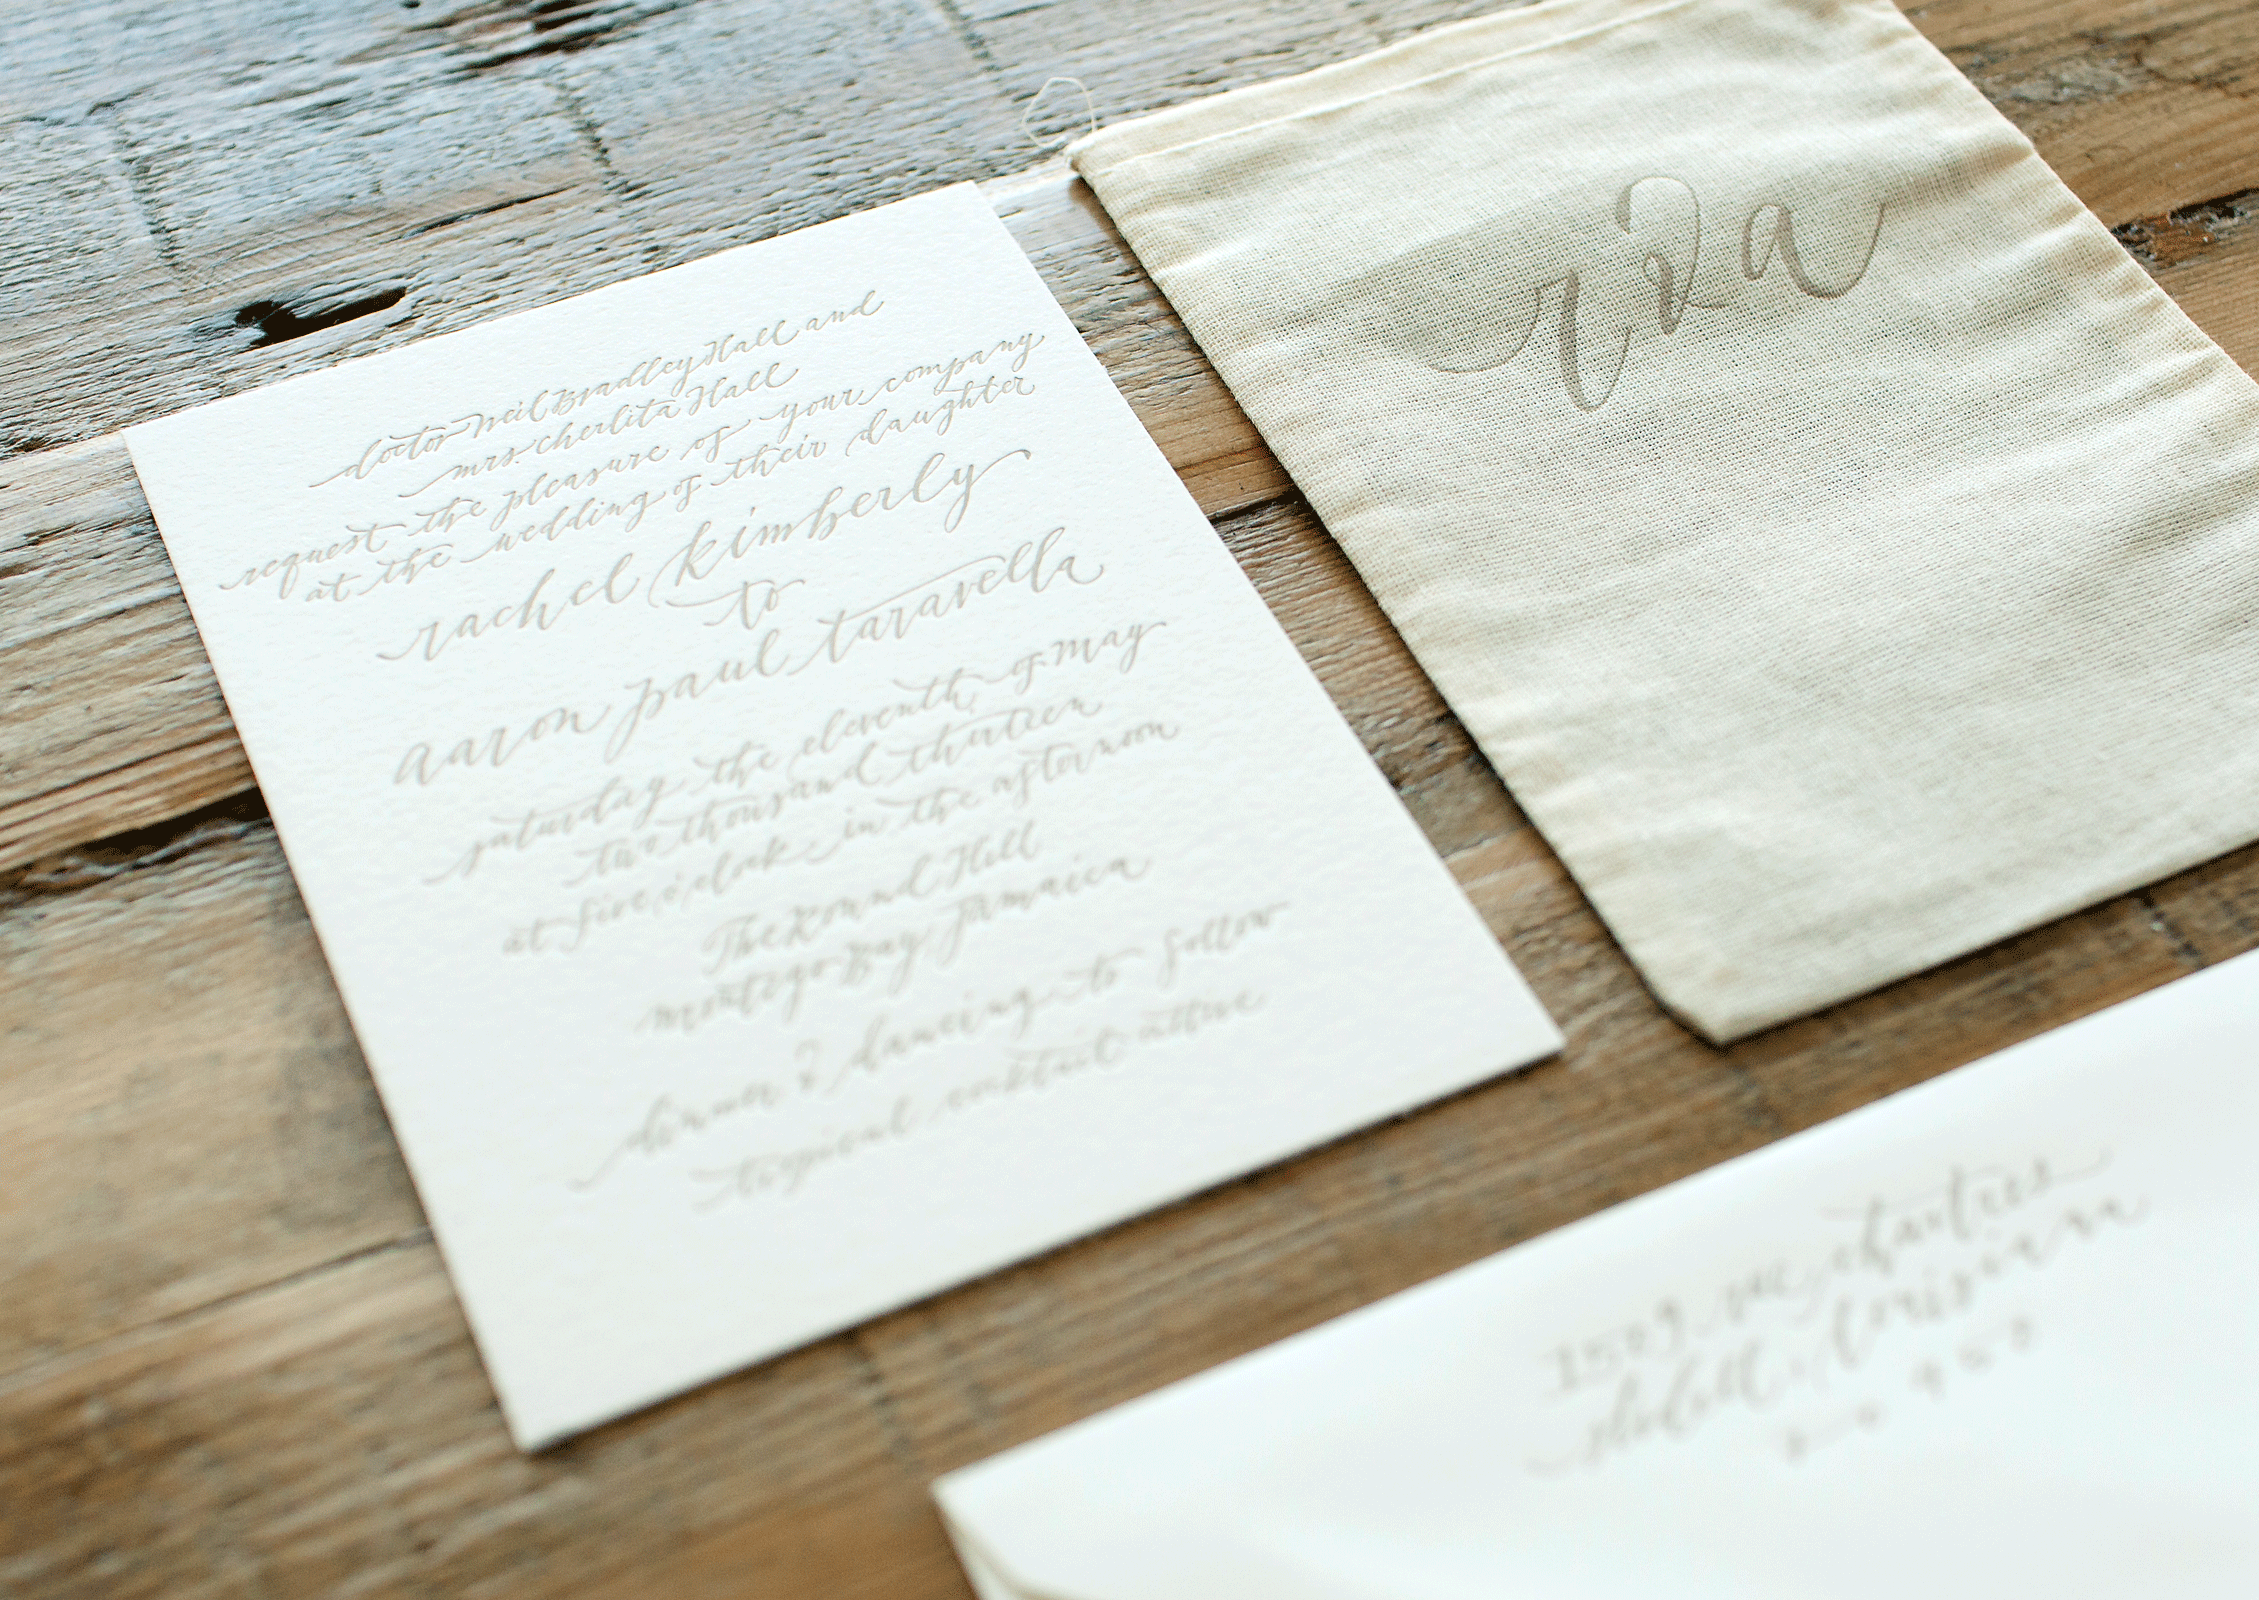 doctor Neil Bradley Hall and
mrs. cherlita Hall
request the pleasure of your company
at the wedding of their daughter
rachel kimberly
to
aaron paul taravella
saturday the eleventh of May
two thousand thirteen
at five o'clock in the afternoon
The Round Hill
montego Bay Jamaica
dinner & dancing to follow
tropical cocktail attire
r & a
1509 chartres
slidell, louisiana